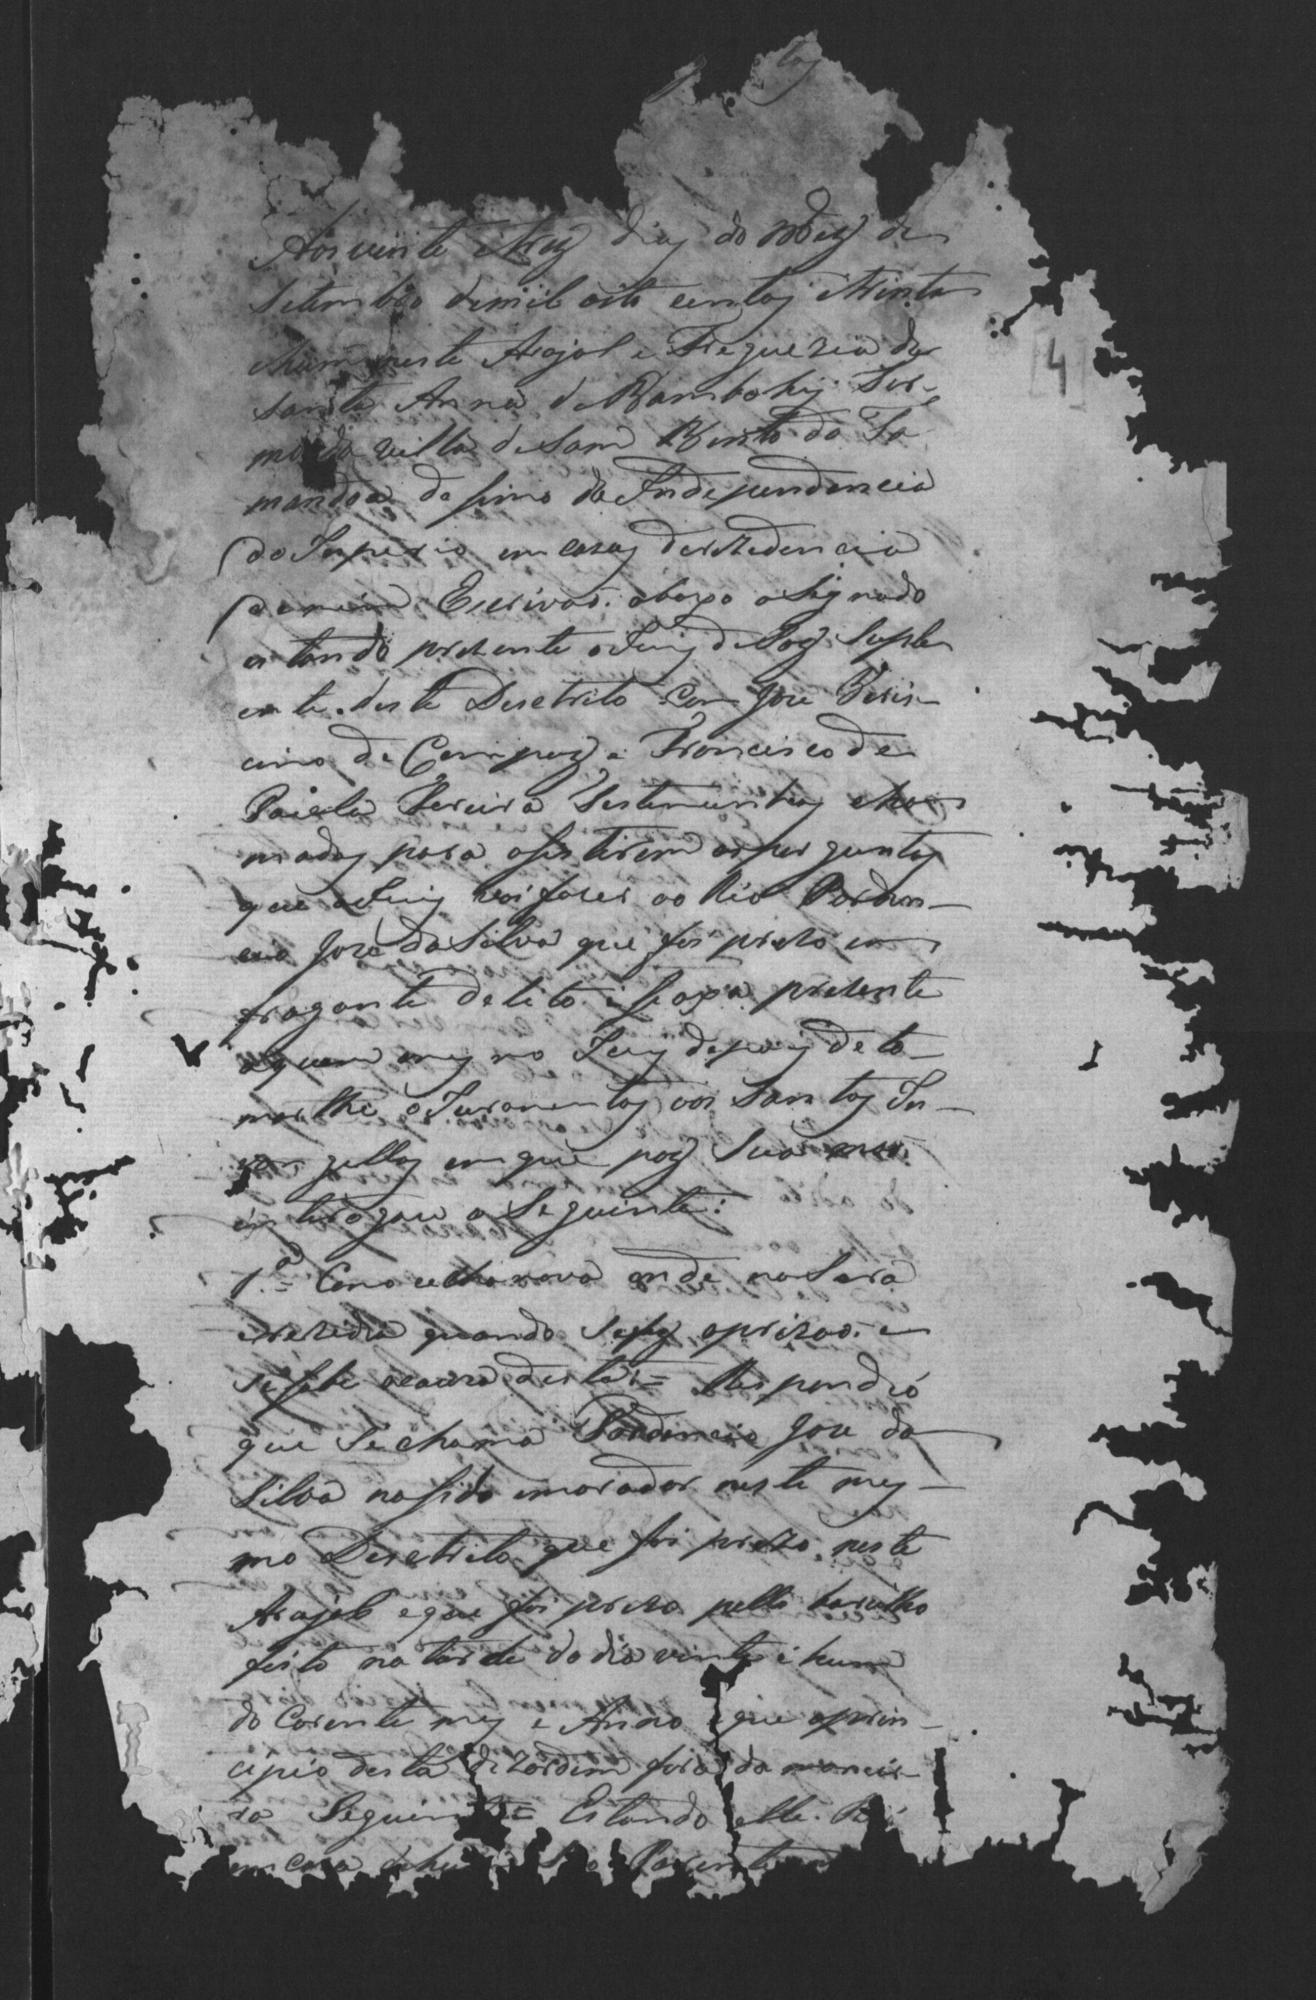 tas
Aos vinte e trez dias do Mez de
Setembro demil oito centos etrinta
ehum neste Arajal e Freguezia da
Santa Anna do Bambohy Ter-
mo da villa de Sam Bento do Ta
mandoa decimo da Independencia
do Imperio em casas derezedencia
demim Escrivaõ. abaxo asignado
estando prezente oJuiz de Paz Suple
ente. deste Destrito Com Joze
cino de Campos, e Francisco de
Paula Pereira Testemunhas cha
madas para asistirem as perguntas
que oJuiz vai fazer ao Réo
cio Joze da Silva que foi prezo em
fragante delito e se axa prezente
aquem mesmo Juiz depois de to-
marlhe oJuramentos aos Santos In-
van gellios em que poz Sua mao
enterogou o Seguinte:
1.ª Como sechamava onde nascera
erezedia quando Sefez aprizaõ. e
se sabe acauza desta:= Respondeó
que Se chama Joze da
Silva nasido emorador neste mes-
mo Destrito, que foi prezo neste
Arajal eque foi prezo pello barulho
feito na tarde do dia vinte e hum
do Corente mez e Anno eque oprin-
cipio desta dezordem fora da manei-
ra Seguinte= Estando elle Ré
em caza dehum Seo Parente
[4]